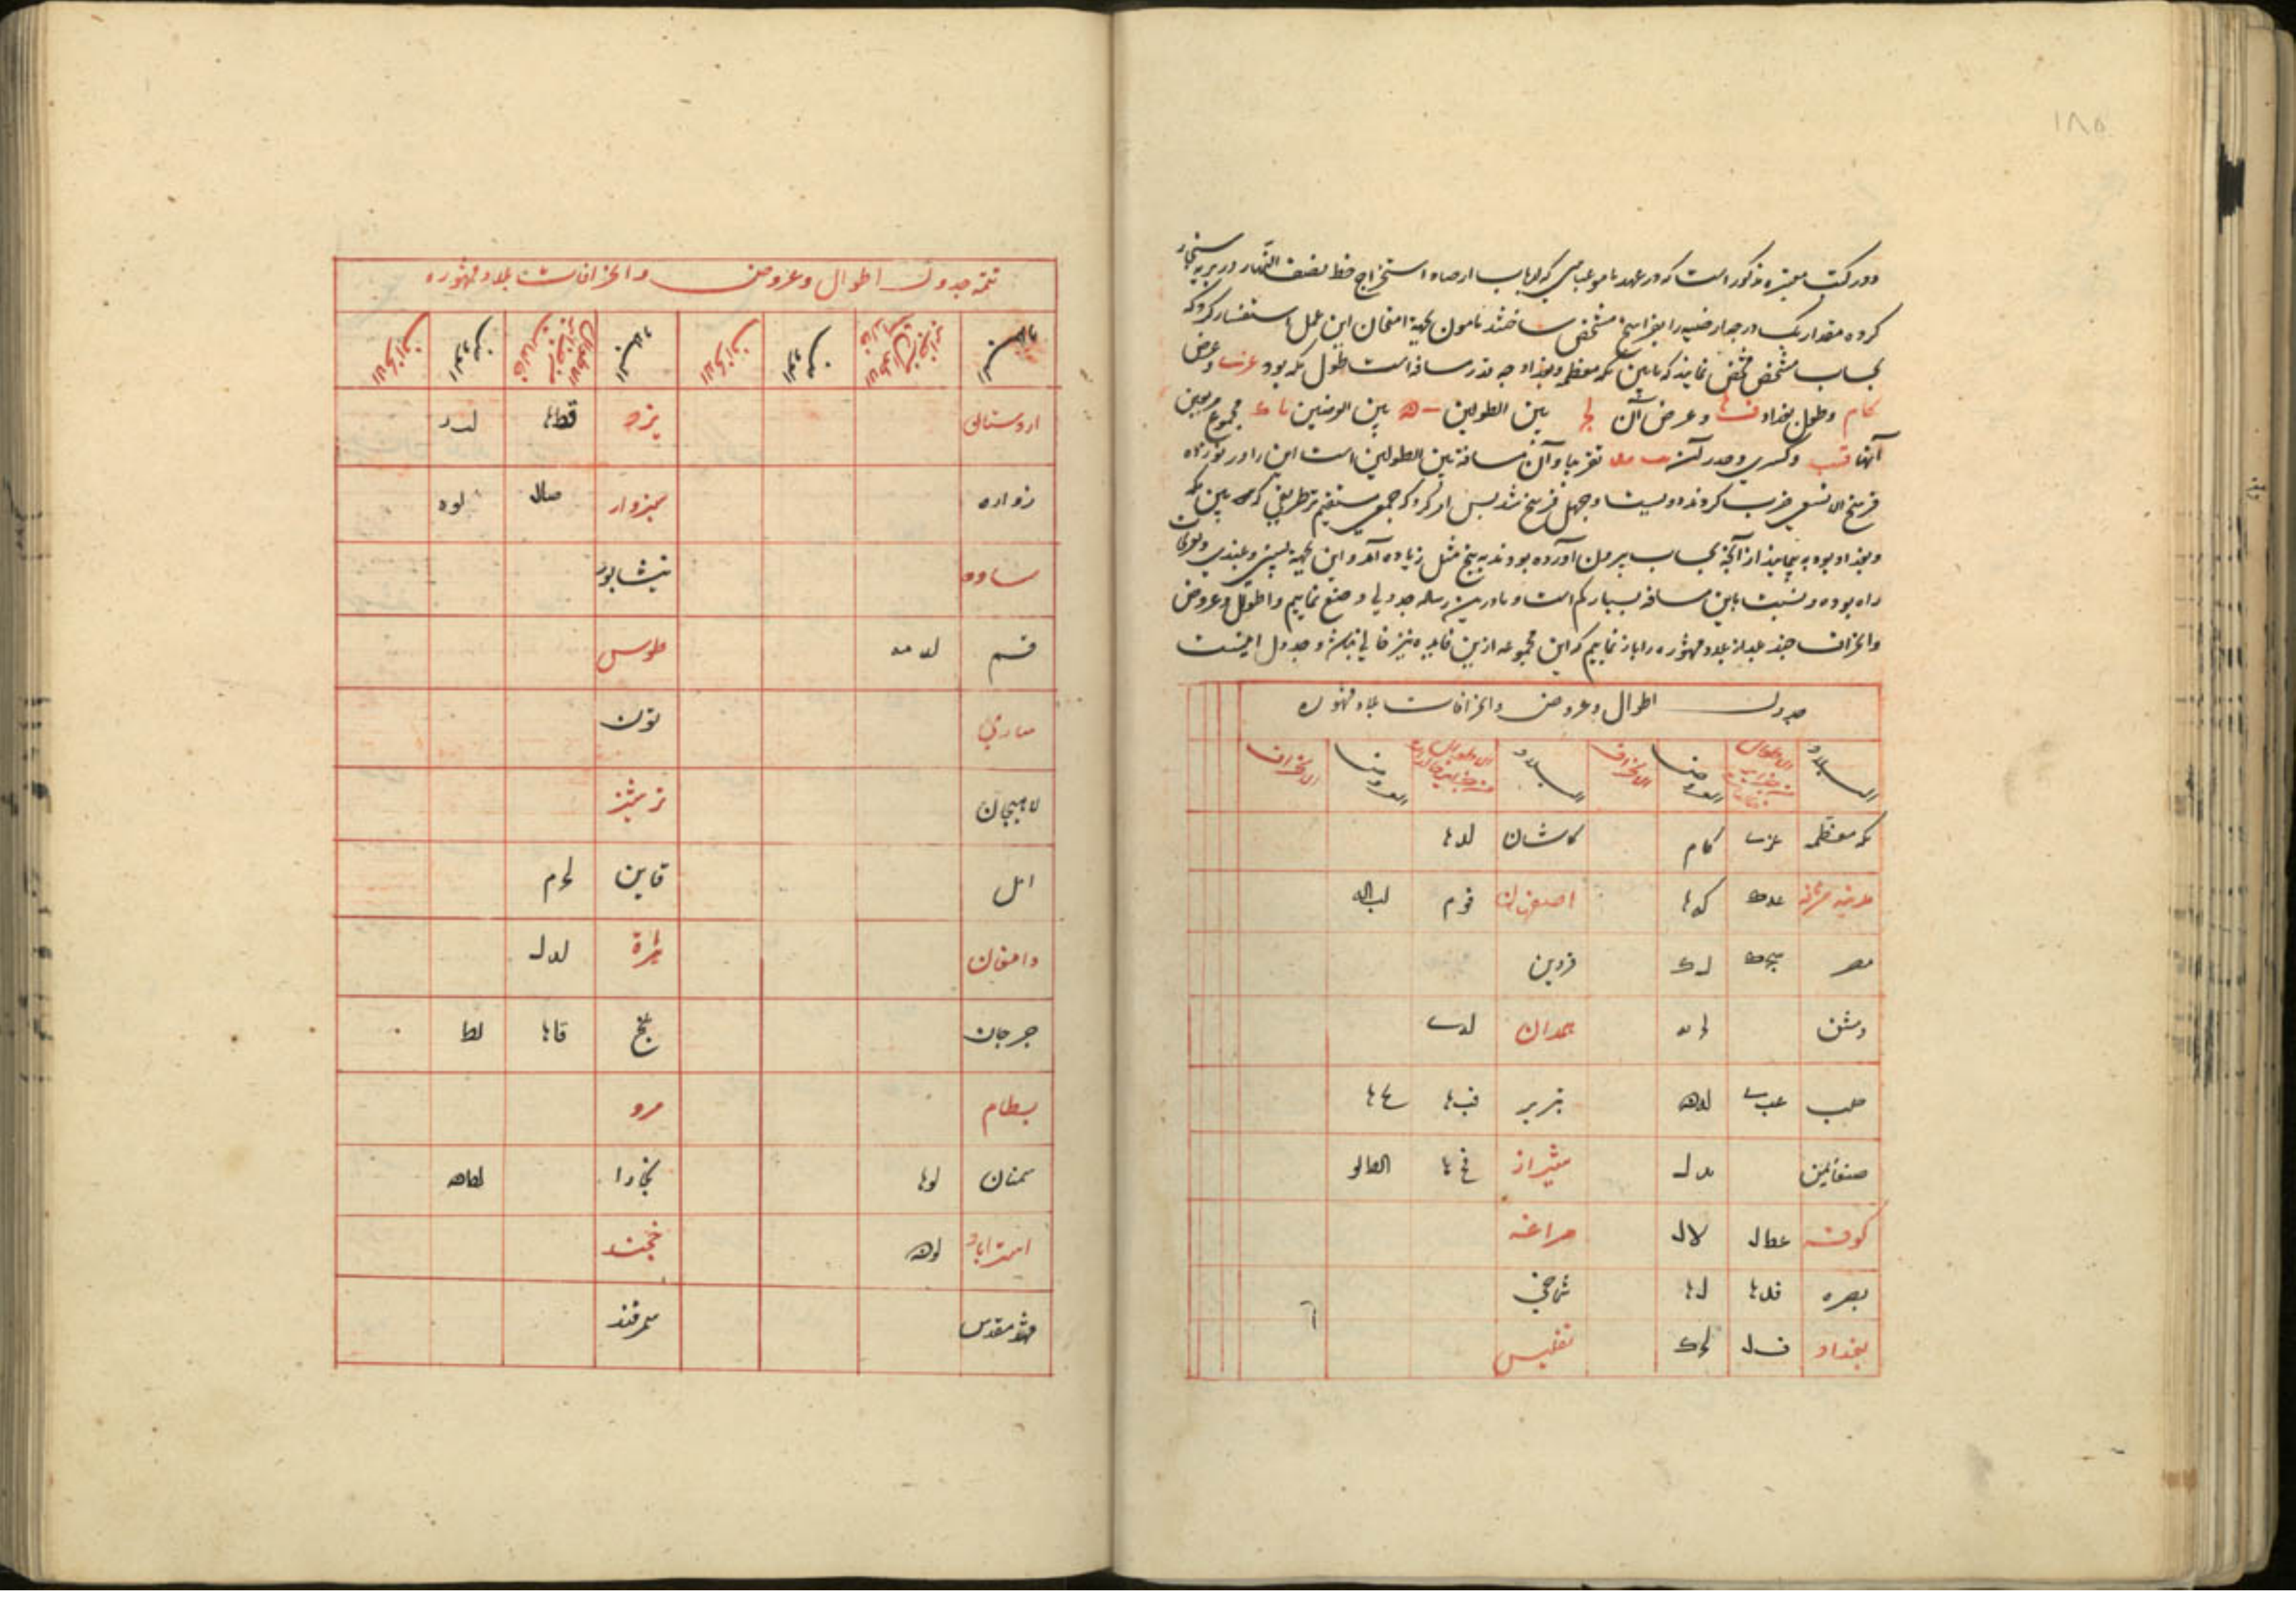 ۱۸۵
و در کتب معتبره مذکور است که در عهد مامون عباسی که ارباب ارصاد استخراج خط نصف النهار در بریه سنجار
کرده مقدار یک درجه ارضیه را بفراسخ مشخص ساختند مامون بجهة امتحان این عمل استفسار کرد که
بحساب مشخص نمایند که مابین مکه معظمه و بغداد چه قدر مسافه است طول مکه بود عزى و عرض
کام و طول بغداد و عرض آن لج بین الطولین بین العرضین مجموع مربعین
آنها قسب و کسری و جذر آن تقریبا و آن مسافة بین الطولین است این را در نوزده
فرسخ الا تسعی ضرب کردند دویست و چهل فرسخ شد پس امر کرد که جمعی مستقیم ترطریقی که بین مکه
و بغداد بود به پیمایند از آنچه بحساب بیرون آورده بودند به پنج مثل زیاده آمد و این بجهة پستی و بلندی
راه بوده و نسبت باین مسافه بسیار کم است و ما درین رساله جدولی وضع نماییم و اطوال و عروض
و انحراف چند بلد از بلاد مشهوره را باز نماییم که این مجموعه ازین فایده نیز خالی نباشد و جدول اینست
جدول اطوال و عروض و انحرافات بلاد مشهوره
البلاد الاطوال من جزایر خالدات العروض الانحراف البلاد الاطوال من جزایر خالدات العروض الانحراف
مکه معظمه عزى کام کاشان لدها
مدینه مشرفه کدها اصفهان فوم لب‌اله
مصر قزوین
دمشق همدان
حلب عب‌ى لده تبریز فب‌ها
صنعا یمن مدل شیراز فح‌ها الط‌لو
کوفه عطل لال مراغه
بصره فدها لها شماخی
بغداد ف‌ل لحک تفلیس
تتمه جدول اطوال و عروض و انحرافات بلاد مشهوره
البلاد الاطوال من جزایر خالدات العروض الانحراف البلاد الاطوال من جزایر خالدات العروض الانحراف
اردستان یزد قطها
زواره سبزوار صال لوه
ساوه نیشابور
قم لدمه طوس
ساری تون
لاهیجان ترشیز
امل قاین لحم
دامغان هراة لدل
جرجان بلخ قاها لط
بسطام مرو
سمنان لوها بخارا لطه
استراباد لوه خجند
مشهد مقدس سمرقند